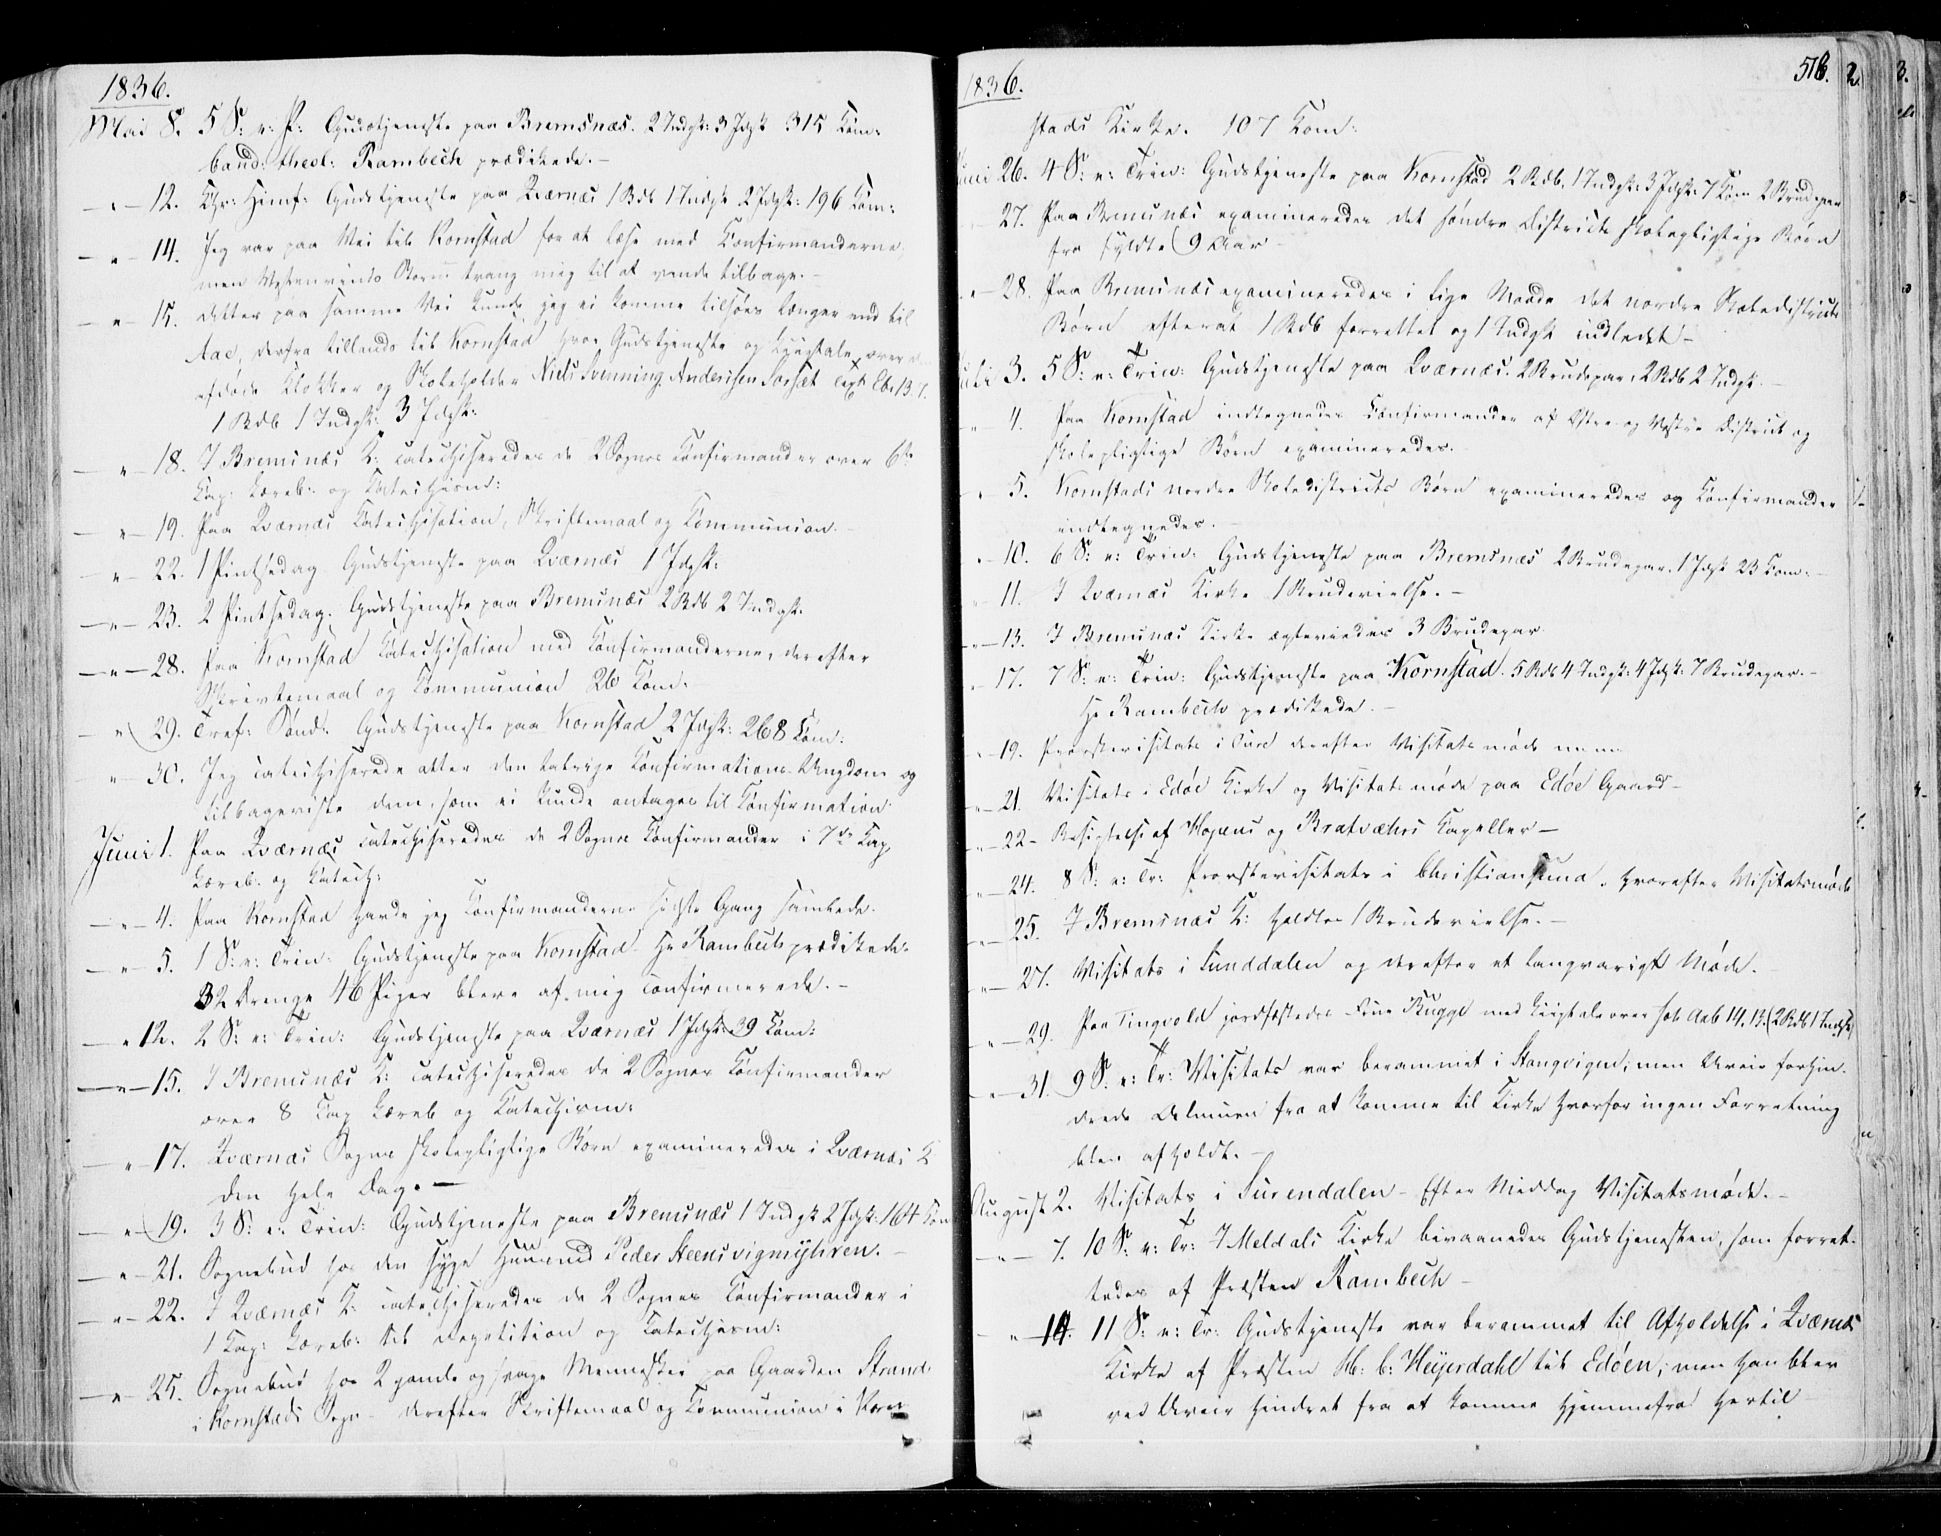 1836.
Mai 8. 5 S: e: P: Gudstjeneste paa Bremsnæs. 2 Indgk: 3 Idgk 315 Com:
Cand: theol: Rambech prædikede. –
– " – 12. Chr: Himf: Gudstjeneste paa Qværnæs 1 Bdb 1 Indgk 2 Idgk: 196 Com:
– " – 14. Jeg var paa Vei til Kornstad for at læse med Confirmanderne,
men Vestenvinds Storm tvang mig til at vende tilbage. –
– " – 15. Atter paa samme Vei kunde jeg ei komme tilsøes længer end til
Aae, derfra tillands til Kornstad hvor Gudstjeneste og Liigtale over
afdøde Klokker og Skoleholder Niels Svenning Andersen Sorset Text Eb. 13. 7.
1 Bdb 1 Indgk: 3 Idgk:
– " – 18. I Bremsnæs K: catechiseredes de 2 Sognes Confirmander over 6te
Cap: Læreb: og Catechism:
– " – 19. Paa Qværnæs Catechisation, Skriftemaal og Communion.
– " – 22. 1 Pintsedag Gudstjeneste paa Qværnæs 1 Idgk:
– " – 23. 2 Pintsedag. Gudstjeneste paa Bremsnæs 2 Bdb 2 Indgk.
– " – 28. Paa Kornstad Catechisation med Confirmanderne, derefter
Skriftemaal og Communion 26 Com:
– " – 29. Tref: Sønd: Gudstjeneste paa Kornstad 2 Idgk: 268 Com:
– " – 30. Jeg catechiserede atter den talrige Confirmations-Ungdom og
tilbageviste dem, som ei kunde antages til Confirmation
Juni 1. Paa Qværnæs catechiseredes de 2 Sognes Confirmander i 7de Cap,
Læreb: og Catech:
– " – 4. Paa Kornstad havde jeg Confirmanderne sidste Gang samlede.
– " – 5. 1 S: e: Trin: Gudstjeneste paa Kornstad. Hr Rambech prædikede.
32 Drenge 46 Piger bleve af mig confirmerede. –
– " 12. 2 S: e: Trin: Gudstjeneste paa Qværnæs 1 Idgk: 39 Com:
– " – 15. I Bremsnæs K: catechiseredes de 2 Sognes Confirmander
over 8 Cap Læreb og Catechism:
– " – 17. Qværnæs Sogns skolepligtige Børn examineredes i Qværnæs K
den hele Dag. –
– " – 19. 3 S: e: Trin: Gudstjeneste paa Bremsnæs 1 Indgk 2 Idgk: 164 Com
– " – 21. Sognebud hos den syge Huusmd Peder Steensvigmyhren. –
– " – 22. I Qværnæs K: catechiseredes de 2 Sognes Confirmander i
1 Cap: Læreb: til Repetition og Catechism:
– " – 25. Sognebud hos 2 gamle og svage Mennesker paa Gaarden Strand
i Kornstads Sogn – derefter Skriftemaal og Communion i Korn-
1836.
518.
stads Kirke. 107 Com:
Juni 26. 4 S: e: Trin: Gudstjeneste paa Kornstad 2 Bdb. 1 Indgk: 3 Idgk: 7 Com 2 Brudepar
27. Paa Bremsnæs examineredes det søndre Districts skolepligtige Børn
fra fyldte 9 Aar
– " – 28. Paa Bremsnæs examineredes i lige Maade det nordre Skoledistricts
Børn efterat 1 Bdb forrettet og 1 Indgk indledet –
Juli 3. 5 S: e: Trin: Gudstjeneste paa Qværnæs. 2 Brudepar. 2 Bdb 2 Indgk. –
– " 4. Paa Kornstad indtegnedes Confirmander af Østre og Vestre District og
skolepligtige Børn examineredes.
– " 5. Kornstads nordre Skoledistricts Børn examineredes og Confirmander
indtegnedes. –
– " – 10. 6 S: e: Trin: Gudstjeneste paa Bremsnæs 2 Brudepar. 1 Idgk 23 Com: –
11. I Qværnæs Kirke 1 Brudevielse. –
– " – 13. I Bremsnæs Kirke ægteviedes 3 Brudepar
– 17. 7 S: e: Trin: Gudstjeneste paa Kornstad. 5 Bdb 4 Indgk: 4 Idgk: 7 Brudepar. –
Hr Rambech prædikede. –
– " – 19. Provstevisitats i derefter Visitatsmøde
– " – 21. Visitats i Edöe Kirke og Visitatsmøde paa Edöe Gaard –
– " – 22 – Besigtelse af Hopens og Bratværs Capeller –
– " – 24. 8 S: e: Tr: Provstevisitats i Christiansund, hvorefter Visitatsmøde
– " – 25. I Bremsnæs K: holdtes 1 Brudevielse. –
– " – 27. Visitats i Sunddalen og derefter et langvarigt Møde.
– " – 29. Paa Tingvold jordfæstedes Bugge med Liigtale over Joh. Aab 14. 13. (2 Bdb 1 Indgk)
– " – 31. 9 S. e: Tr: Visitats var berammet i Stangvigen, men Uveir forhin-
drede Almuen fra at komme til Kirke hvorfor ingen Forretning
blev afholdt. –
August 2. Visitats i Surendalen – Efter Middag Visitatsmøde. –
– " – 7. 10 S: e: Tr: I Meldals Kirke bivaanedes Gudstjenesten, som forret-
tedes af Præsten Rambech –
– " – 14. 11 S: e: Tr: Gudstjeneste var berammet til Afholdelse i Qværnæs
Kirke af Præsten Heyerdahl til Edöen, men han blev
ved Uveir hindret fra at komme hjemmefra hertil